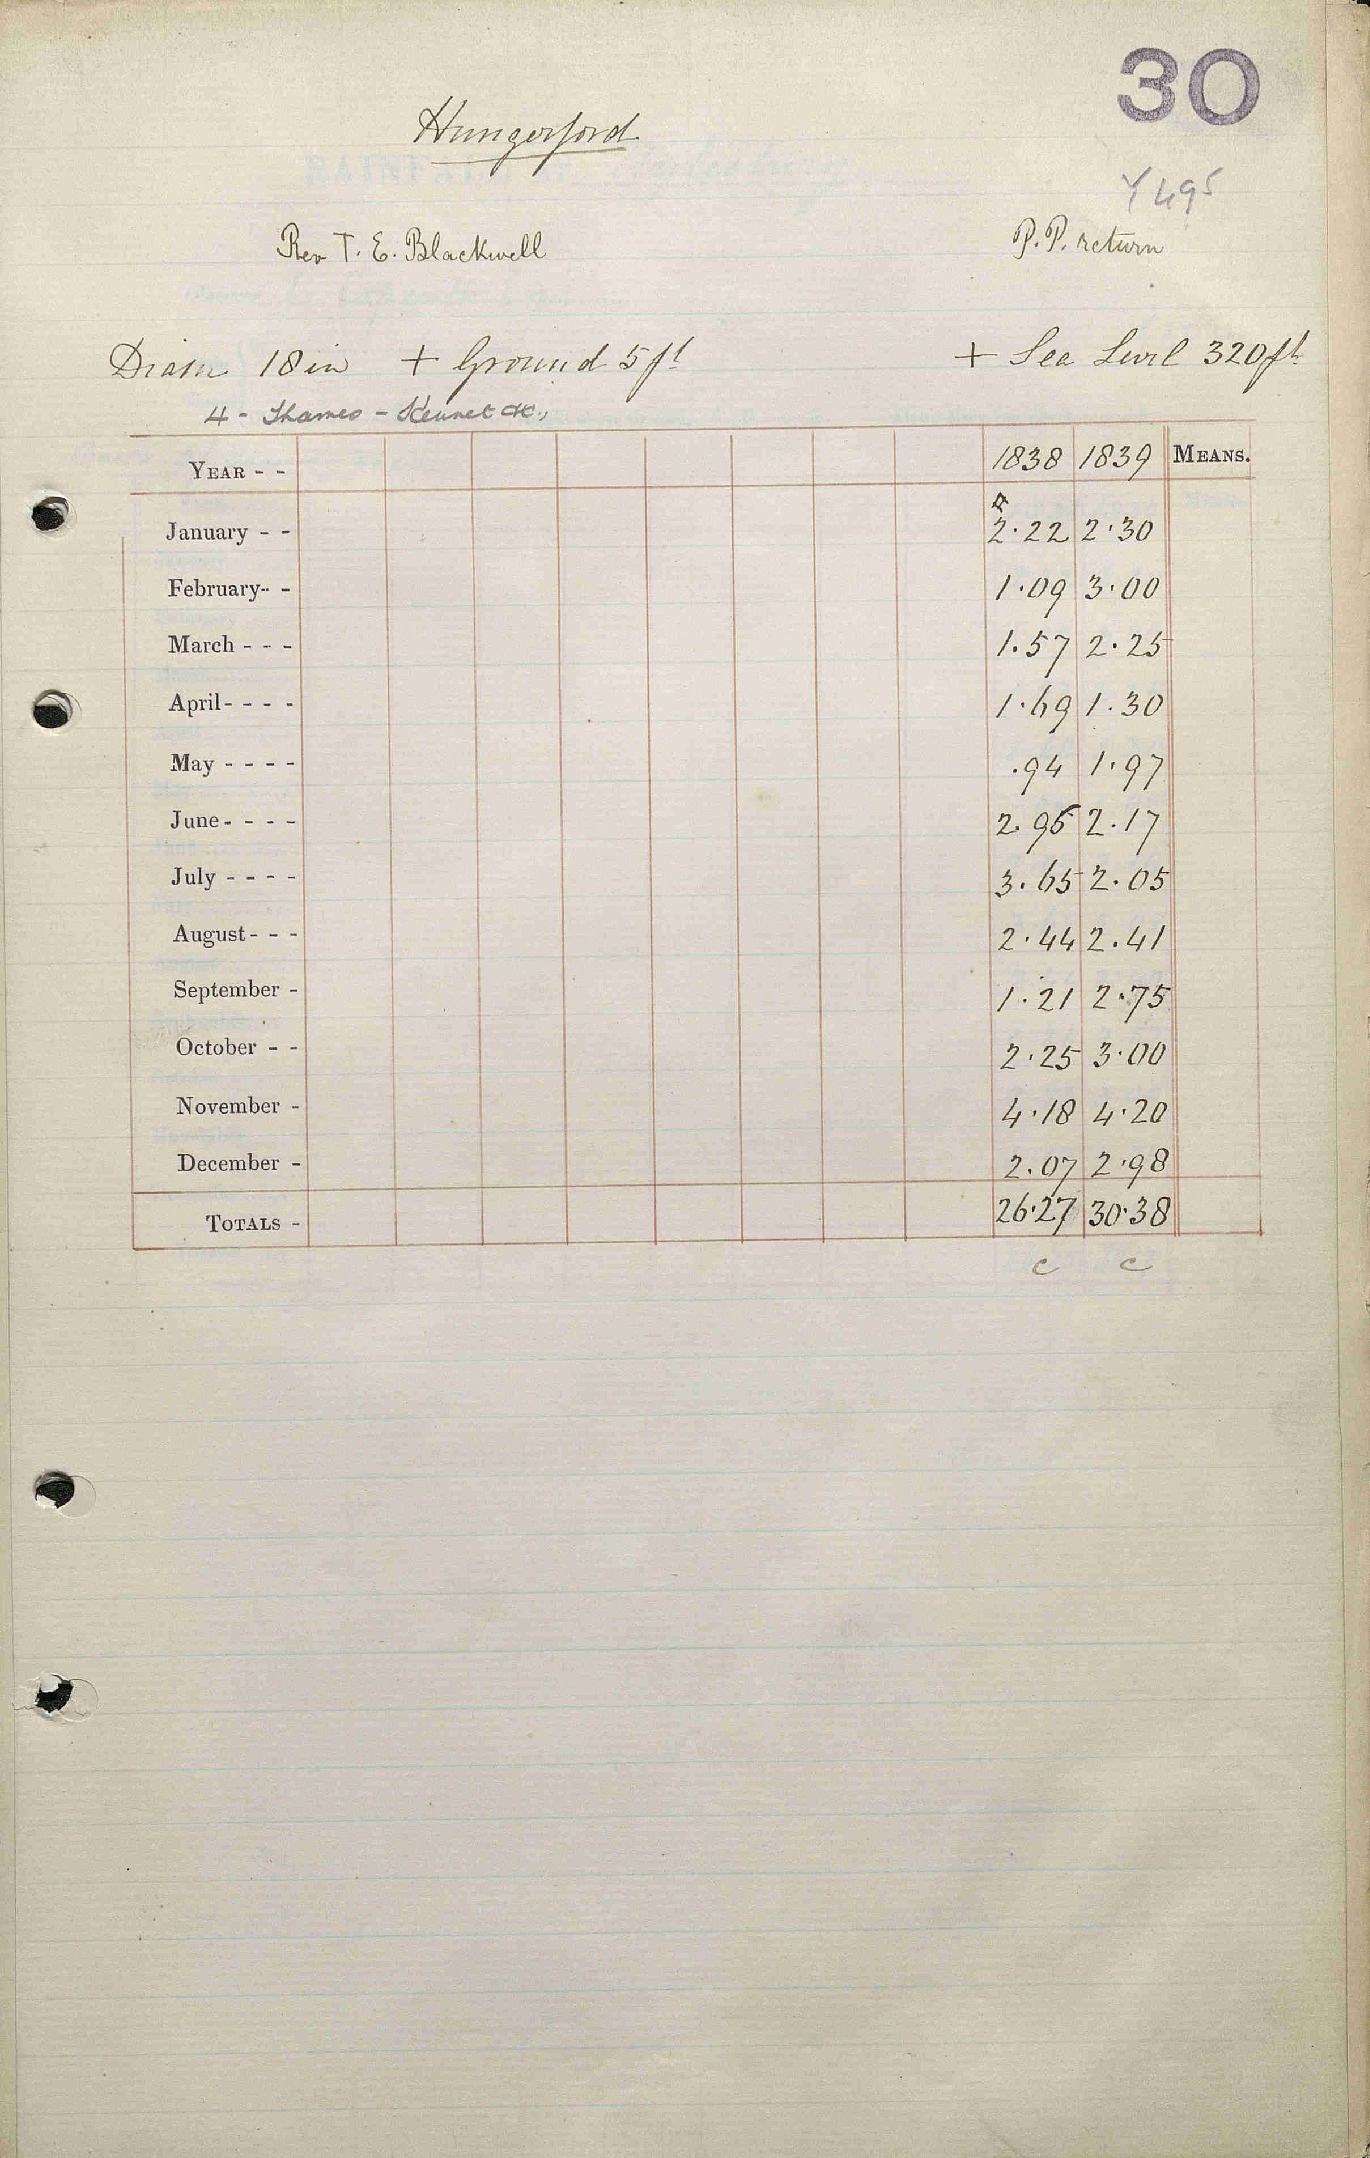 30
Hungerford
Y495
Rev T. E. Blackwell P.P. return
Diam 18 in + Ground 5 ft + Sea Level 320 ft
4 - Thames - Kennet &c.,
YEAR - - 1838 1839 MEANS.
January - - 2.22 2.30
February - - 1.09 3.00
March - - - 1.57 2.25
April - - - - 1.69 1.30
May - - - - .94 1.97
June - - - - 2.96 2.17
July - - - - 3.65 2.05
August - - - 2.44 2.41
September - 1.21 2.75
October - - 2.25 3.00
November - 4.18 4.20
December - 2.07 2.98
TOTALS - 26.27 30.38
c c